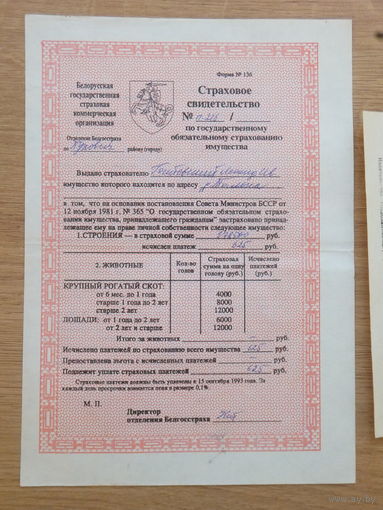 Форма № 136
Белорусская
государственная
страховая
коммерческая
организация
Страховое
свидетельство
№ 0216 /
по государственному
обязательному страхованию
имущества
Отделение Белгосстраха
по району (городу)
Выдано страхователю
имущество которого находится по адресу
в том, что на основании постановления Совета Министров БССР от
12 ноября 1981 г. № 365 "О государственном обязательном страхо-
вании имущества, принадлежащего гражданам" застраховано принад-
лежащее ему на праве личной собственности следующее имущество:
1. СТРОЕНИЯ — в страховой сумме руб.
исчислен платеж 625 руб.
2. ЖИВОТНЫЕ
Кол-во голов
Страховая сумма на одну голову (руб.)
Исчислено платежей (руб.)
КРУПНЫЙ РОГАТЫЙ СКОТ:
от 6 мес. до 1 года 4000
старше 1 года до 2 лет 8000
старше 2 лет 12000
ЛОШАДИ: от 1 года до 2 лет 6000
от 2 лет и старше 12000
Итого за животных руб.
Исчислено платежей по страхованию всего имущества 625 руб.
Предоставлена льгота с исчисленных платежей руб.
Подлежит уплате страховых платежей 625 руб.
Страховые платежи должны быть уплачены к 15 сентября 1993 года. За
каждый день просрочки взимается пеня в размере 0,1%.
М. П.
Директор
отделения Белгосстраха
www.ay.by